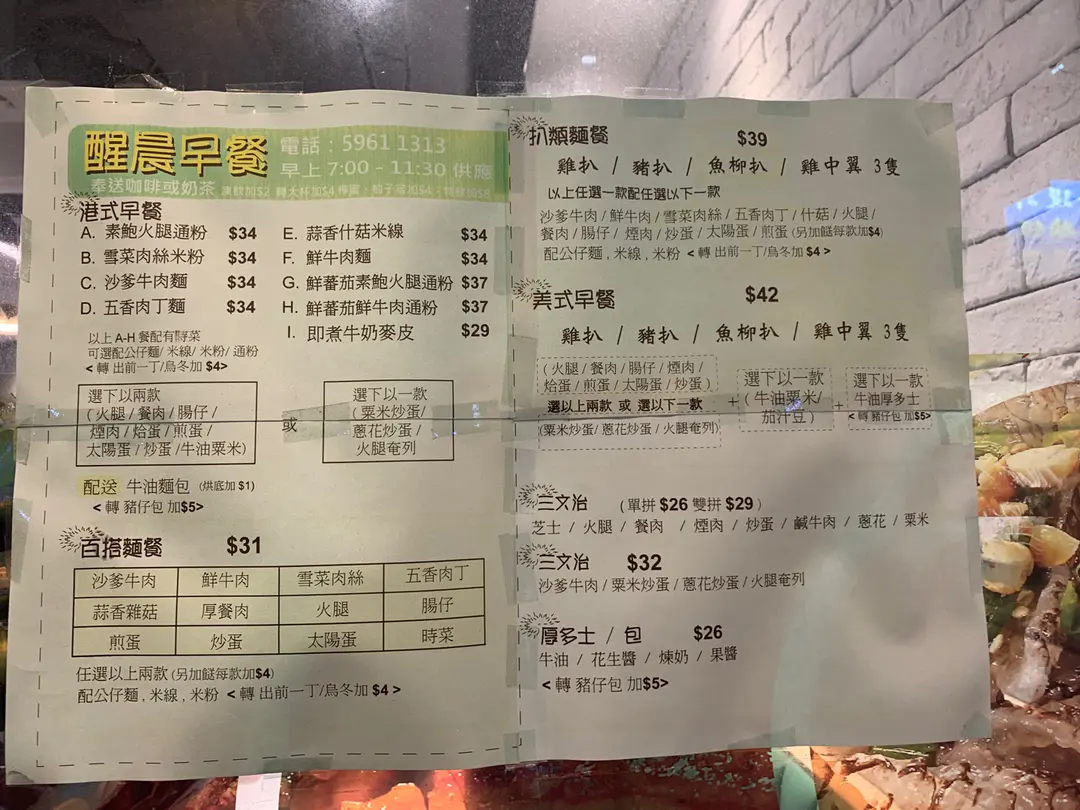 醒晨早餐
電話：5961 1313
早上 7:00 - 11:30 供應
奉送咖啡或奶茶 凍飲加$2
港式早餐
A. 素鮑火腿通粉 $34
B. 雪菜肉絲米粉 $34
C. 沙爹牛肉麵 $34
D. 五香肉丁麵 $34
E. 蒜香什菇米線 $34
F. 鮮牛肉麵 $34
G. 鮮蕃茄素鮑火腿通粉 $37
H. 鮮蕃茄鮮牛肉通粉 $37
I. 即煮牛奶麥皮 $29
以上 A-H 餐配有時菜
可選配公仔麵/ 米線/ 米粉/ 通粉
< 轉 出前一丁/烏冬加 $4>
選下以兩款
( 火腿 / 餐肉 / 腸仔 /
煙肉 / 烚蛋 / 煎蛋 /
太陽蛋 / 炒蛋 /牛油粟米)
或
選下以一款
( 粟米炒蛋/
蔥花炒蛋 /
火腿奄列
配送 牛油麵包 (烘底加 $1)
< 轉 豬仔包 加$5>
百搭麵餐 $31
沙爹牛肉 鮮牛肉 雪菜肉絲 五香肉丁
蒜香雜菇 厚餐肉 火腿 腸仔
煎蛋 炒蛋 太陽蛋 時菜
任選以上兩款 (另加餸每款加$4)
配公仔麵 , 米線 , 米粉 < 轉 出前一丁/烏冬加 $4 >
扒類麵餐 $39
雞扒 / 豬扒 / 魚柳扒 / 雞中翼 3隻
以上任選一款配任選以下一款
沙爹牛肉 / 鮮牛肉 / 雪菜肉絲 / 五香肉丁 / 什菇 / 火腿 /
餐肉 / 腸仔 / 煙肉 / 炒蛋 / 太陽蛋 / 煎蛋 (另加餸每款加$4)
配公仔麵 , 米線 , 米粉 < 轉 出前一丁/烏冬加 $4 >
美式早餐 $42
雞扒 / 豬扒 / 魚柳扒 / 雞中翼 3隻
( 火腿 / 餐肉 / 腸仔 / 煙肉 /
烚蛋 / 煎蛋 / 太陽蛋 / 炒蛋 )
選以上兩款 或 選以下一款
(粟米炒蛋/ 蔥花炒蛋 / 火腿奄列)
+
選下以一款
( 牛油粟米/
茄汁豆 )
+
選下以一款
牛油厚多士
< 轉 豬仔包 加$5>
三文治 ( 單拼 $26 雙拼 $29 )
芝士 / 火腿 / 餐肉 / 煙肉 / 炒蛋 / 鹹牛肉 / 蔥花 / 粟米
三文治 $32
沙爹牛肉 / 粟米炒蛋 / 蔥花炒蛋 / 火腿奄列
厚多士 / 包 $26
牛油 / 花生醬 / 煉奶 / 果醬
< 轉 豬仔包 加$5>